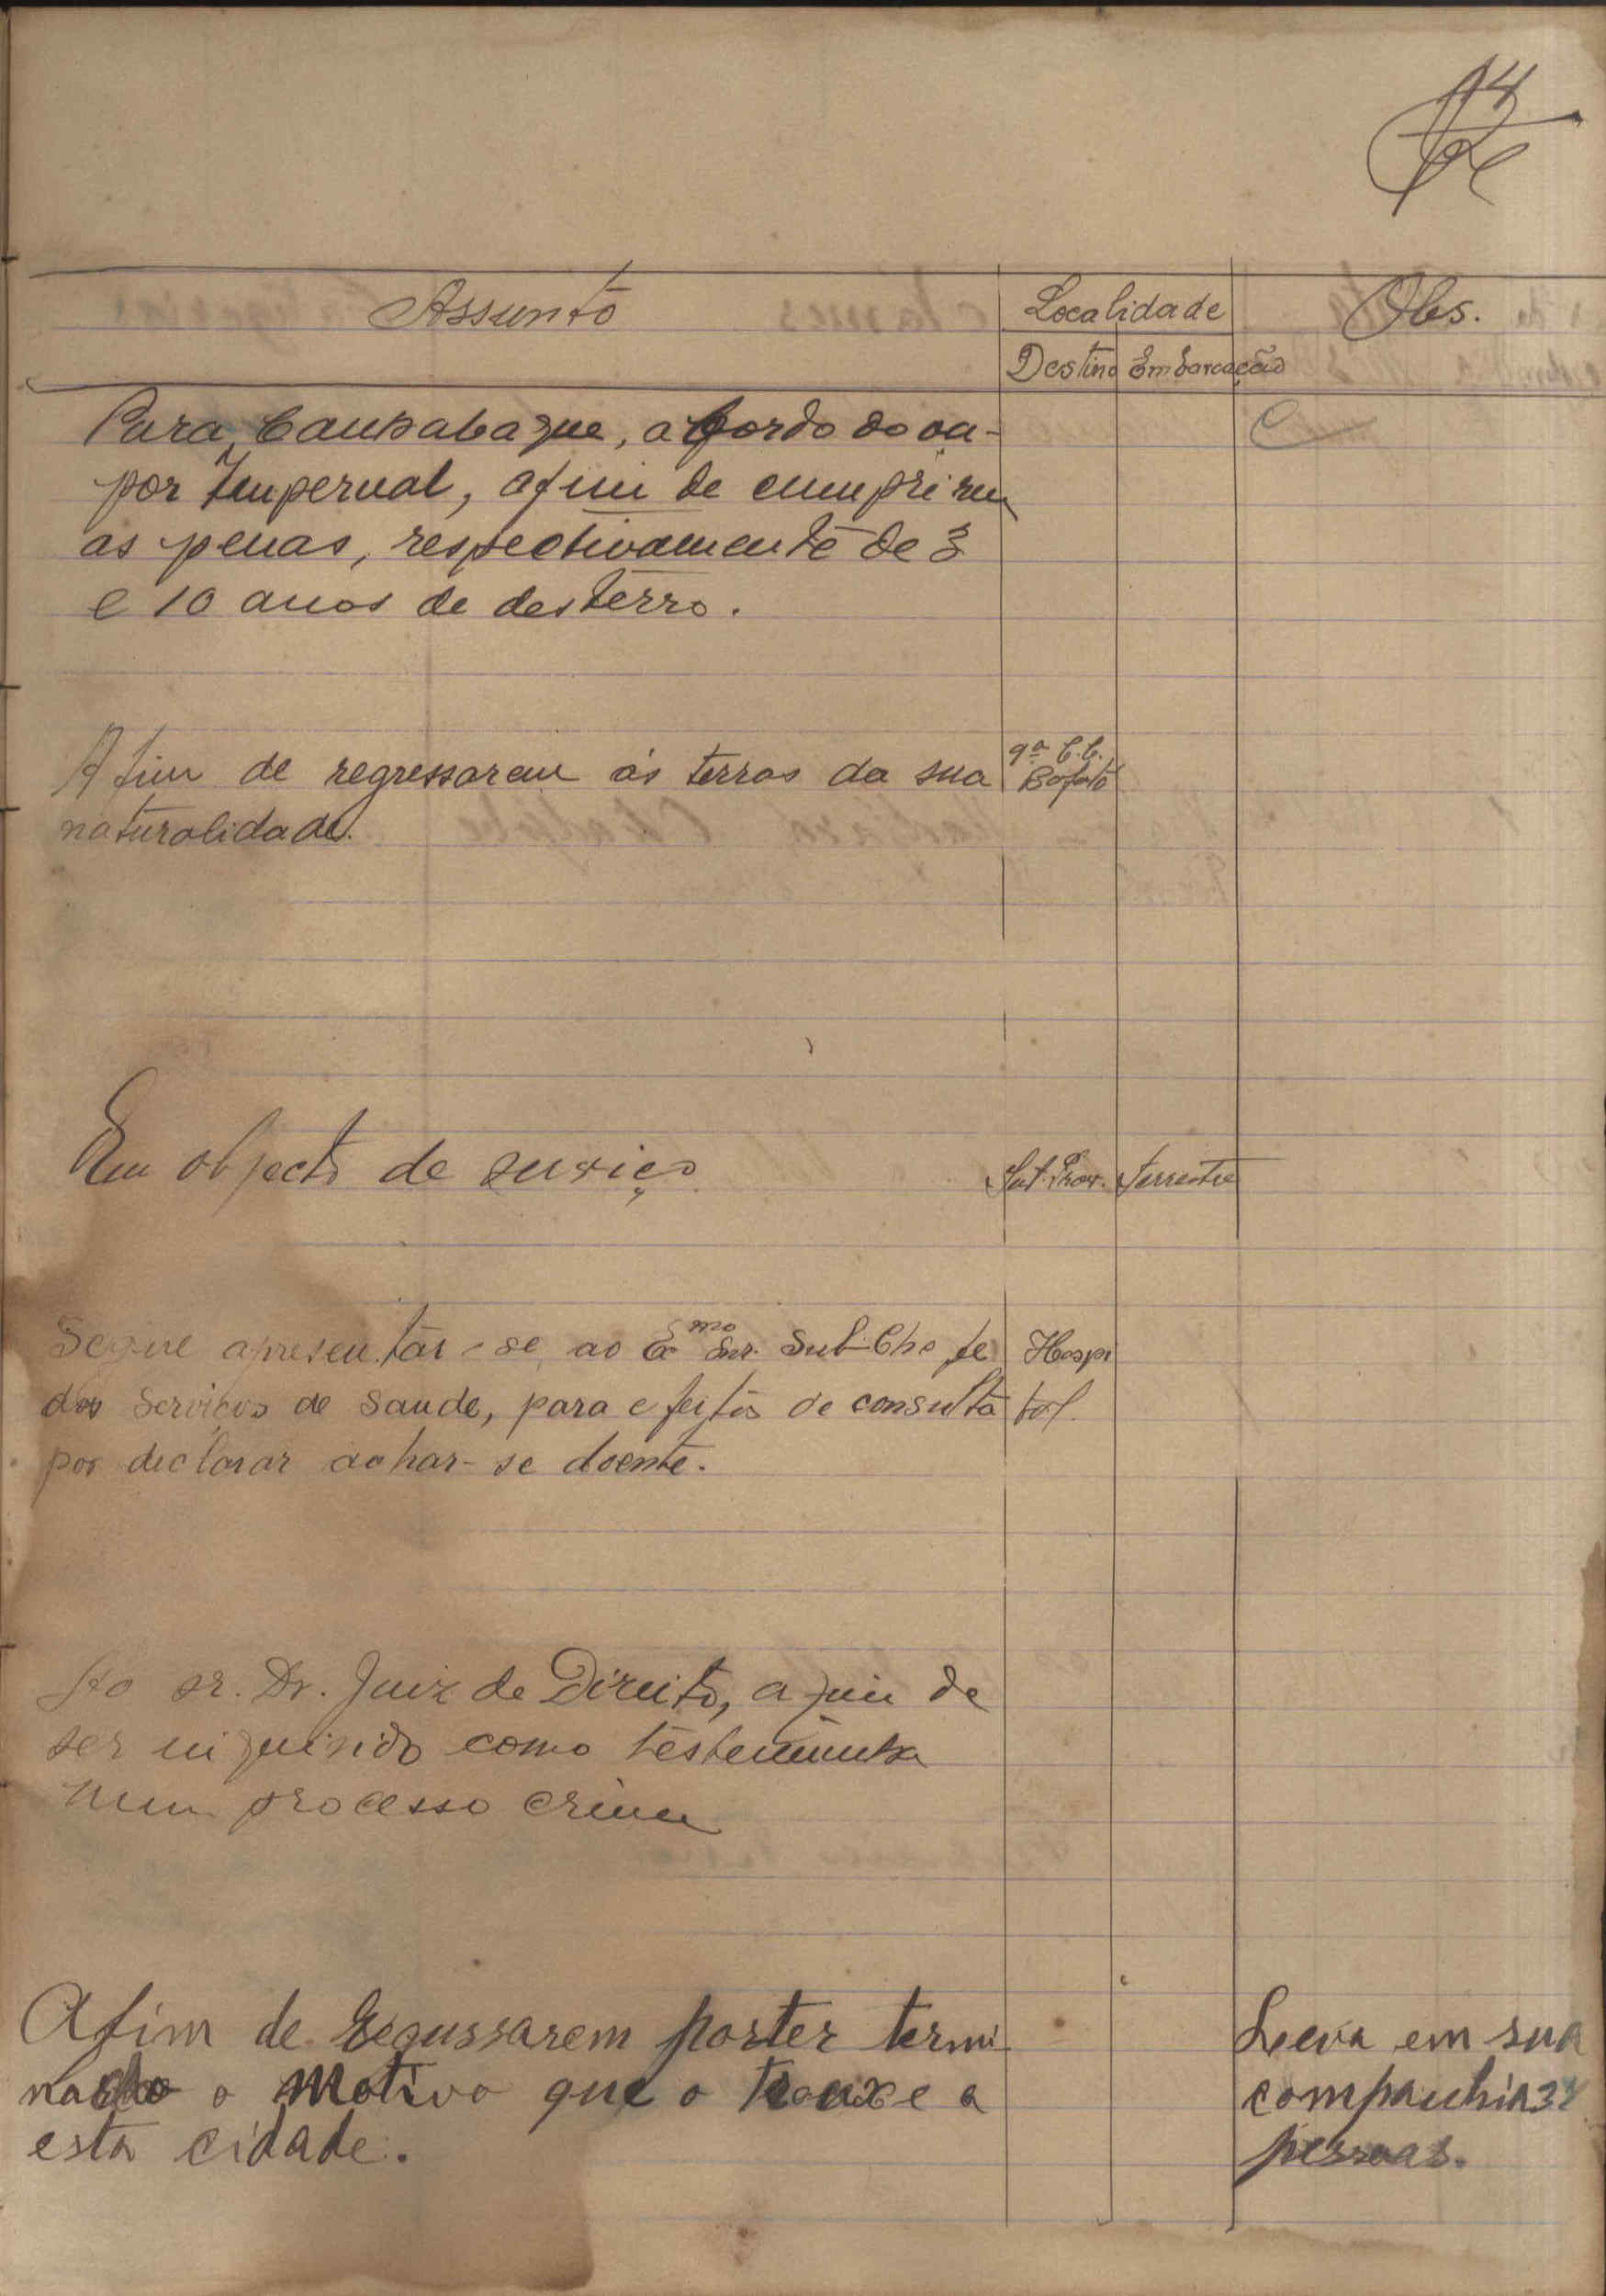 14
Assunto
Localidade
Obs.
Destino Embarcação
Para, Canhabaque, a bordo do va-
por Impernal, afim de cumprirem
as penas, respectivamente de 3
e 10 anos de desterro.
Afim de regressarem ás terras da sua
naturalidade.
9ª C.C.
Bafatá
Em objecto de serviço
Int. Prov. Terrestre
Segue apresentar-se ao Exmo Snr. Sub-Chefe
dos Serviços de Saude, para efeitos de consulta
por declarar achar-se doente.
Hospi
tal.
Ao sr. Dr. Juiz de Direito, afim de
ser inquirido como testemunha
num processo crime
Afim de regussarem porter termi
nado o motivo que o trouxe a
esta cidade.
Leva em sua
companhia 3
pessoas.